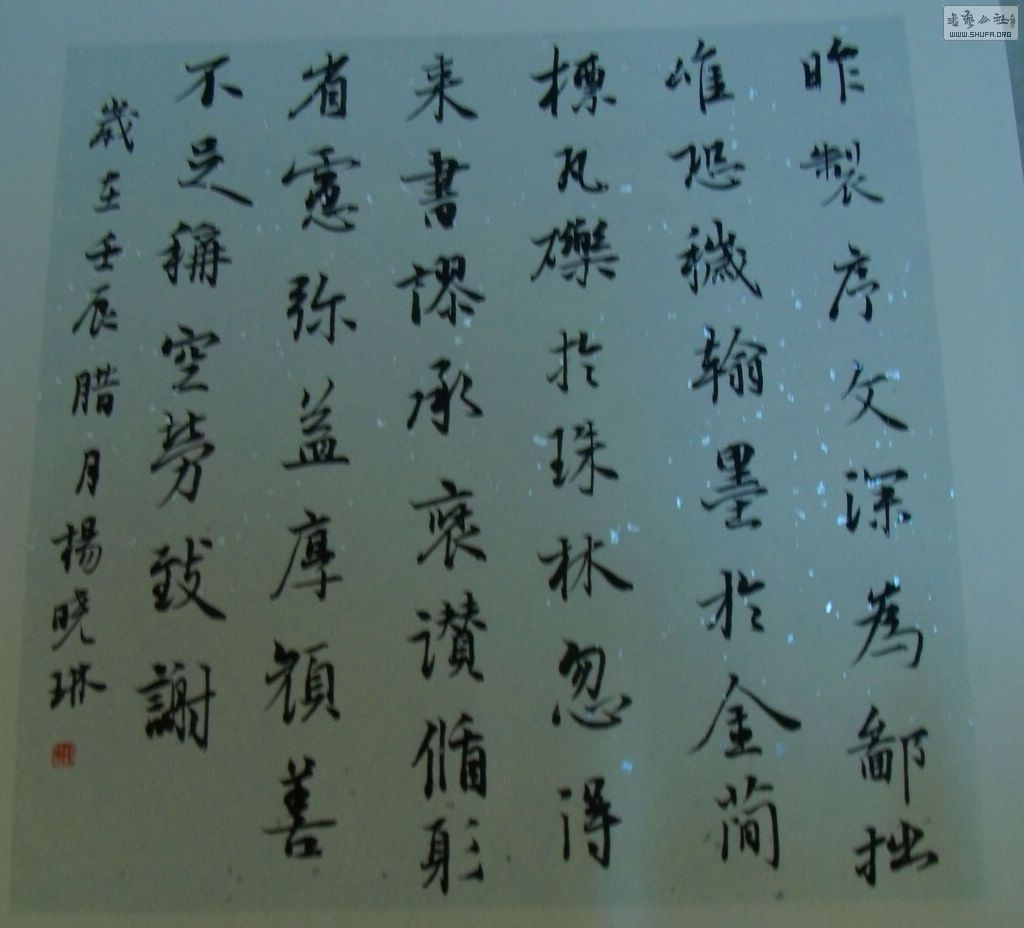 昨製序文深為鄙拙
唯恐穢翰墨於金簡
標瓦礫於珠林忽得
来書謬承褒讃循躬
省慮弥益厚顔善
不足稱空勞致謝
歲在壬辰腊月楊曉琳
书艺公社
WWW.SHUFA.ORG